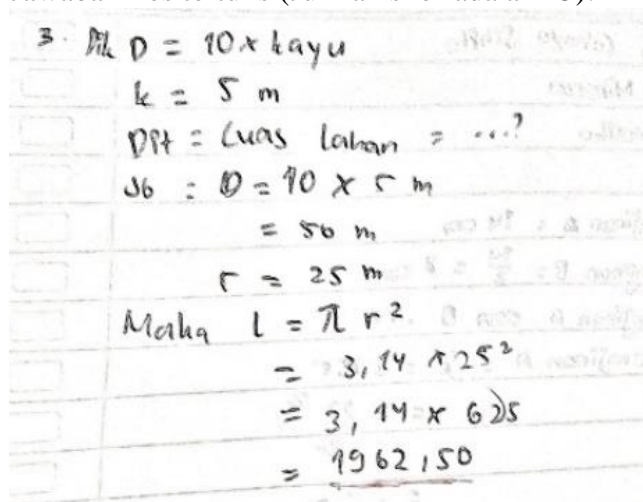 3. Dik D = 10 x kayu
k = 5 m
Dit = Luas lahan = ...?
Jb : D = 10 x 5 m
= 50 m
r = 25 m
Maka L = π r²
= 3,14 x 25²
= 3,14 x 625
= 1962,50